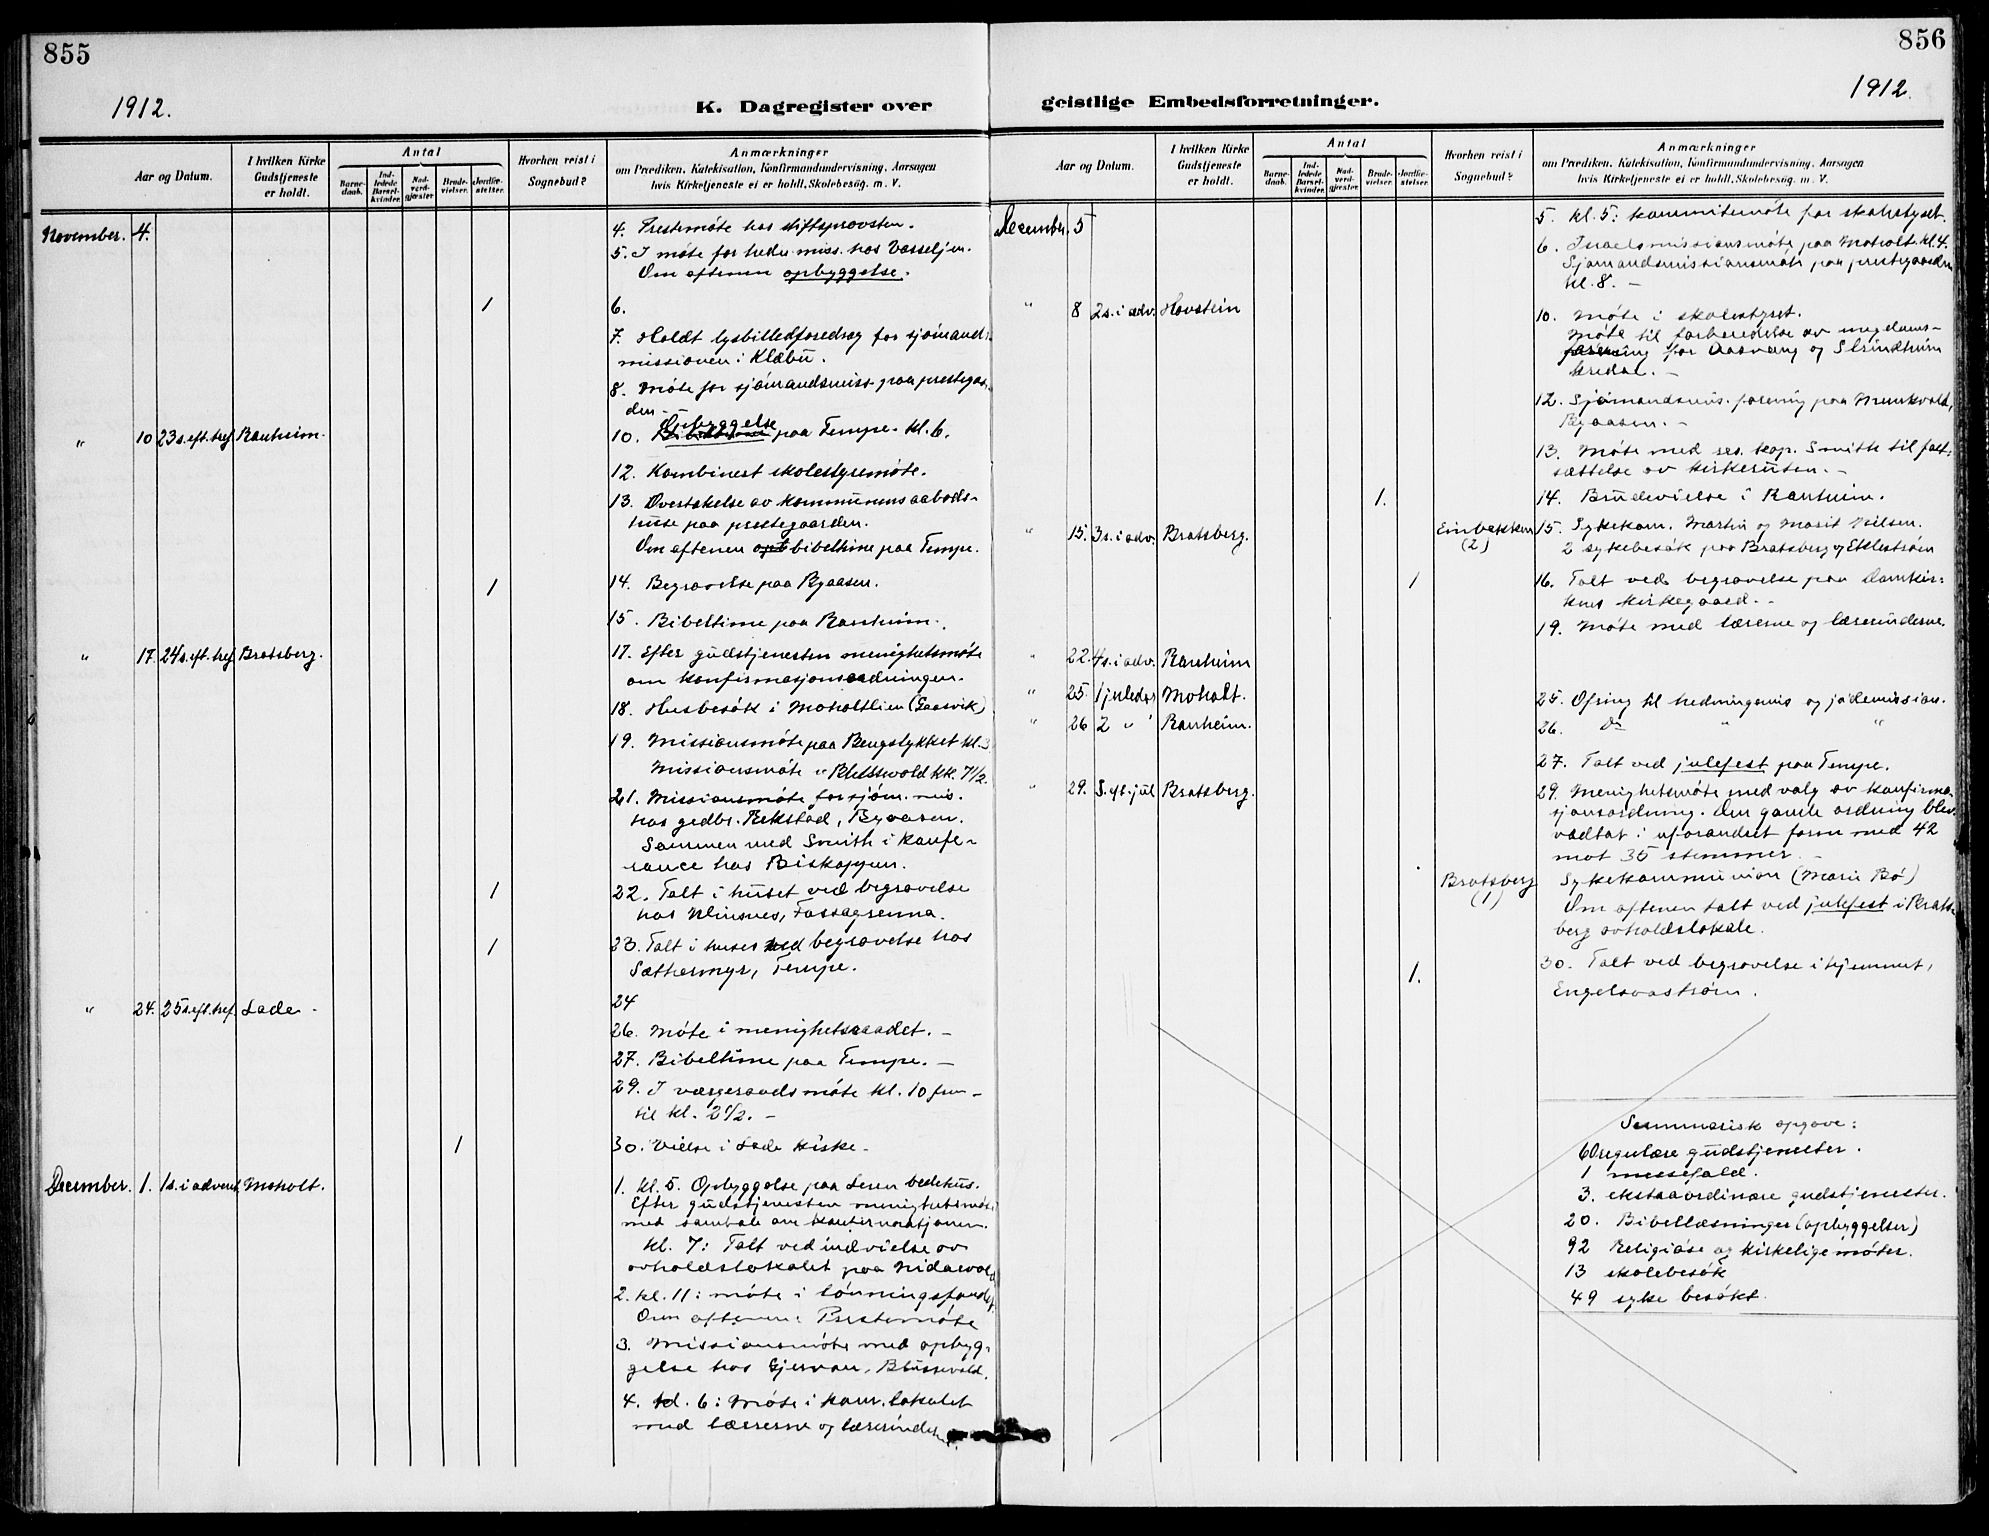 855
1912.
K. Dagregister over
Aar og Datum.
I hvilken Kirke Gudstjeneste er holdt.
Antal
Barnedaab.
Indledede Barselkvinder.
Nadverdgjæster
Brudevielser.
Jordfæstelser.
Hvorhen reist i Sognebud?
Anmærkninger
om Prædiken, Katekisation, Konfirmandundervisning, Aarsagen
hvis Kirketjeneste ei er holdt, Skolebesøg, m. V.
November. 4.
4. Prestemöte hos stiftsprovsten.
5. I möte for heden. miss. hos Vasseljen.
Om aftenen opbyggelse.
1
6.
7. Holdt lysbilledforedrag for sjömands
missionen i Klæbu.
8. Möte for sjömandsmiss. paa prestegaar
den.
" 10 23 s. eft. tref. Ranheim.
Opbyggelse
10. Bibeltime paa Tempe. kl. 6.
12. Kombinert skolestyremöte.
13. Overtakelse av kommunens aabods-
huse paa prestegaarden.
Om aftenen opb bibeltime paa Tempe.
1
14. Begravelse paa Byaasen.
15. Bibeltime paa Ranheim.
" 17. 24 s. eft. tref. Bratsberg.
17. Efter gudstjenesten menighetsmöte
om konfirmasjonsordningen.
18. Husbesök i Moholtlien (Gaasvik)
19. Missionsmöte paa Bergstykket kl. 3
Missionsmöte " Blussvold kl. 7½.
21. Missionsmöte for sjöm. mis.
hos gedbr. Rekstad, Byaasen.
Sammen med Smith i konfe-
rance hos Biskoppen.
1
22. Talt i huset ved begravelse
hos Klinsnes, Fossegrenna.
1
23. Talt i huset ved begravelse hos
Sæthermyr, Tempe.
" 24. 25 s. eft. tref. Lade.
24
26. Möte i menighetsraadet. -
27. Bibeltime paa Tempe. -
29. I vergeraadsmöte kl. 10 fm -
til kl. 2½. -
1
30. Vielse i Lade kirke.
December. 1. 1 s. i advent Moholt.
1. kl. 5. Opbyggelse paa Leren bedehus.
Efter gudstjenesten menighetsmöte
med samtale om konfirmasjonen.
kl. 7: Talt ved indvielse av
avholdslokalet paa Nidarvold
2. kl. 11: möte i lönningsfondet.
Om aftenen: Prestemöte
3. Missionsmöte med opbyg-
gelse hos Gjervan, Blussevold.
4. kl. 6: Möte i kom. lokalet
med lærerne og lærerinder
856
1912.
geistlige Embedsforretninger.
Aar og Datum.
I hvilken Kirke Gudstjeneste er holdt.
Antal
Barnedaab.
Indledede Barselkvinder.
Nadverdgjæster.
Brudevielser.
Jordfæstelser.
Hvorhen reist i Sognebud?
Anmærkninger
om Prædiken, Katekisation, Konfirmandundervisning, Aarsagen
hvis Kirketjeneste ei er holdt, Skolebesøg, m. V.
December. 5
5. kl. 5: kommitemöte for skolestyret.
6. Israelsmissionsmöte paa Moholt. kl. 4.
Sjömandsmissionsmöte paa prestegaarden
kl. 8. -
" 8 2 s. i adv. Hovstein
10. Möte i skolestyret.
Möte til forberedelse av ungdoms-
forening for Aasvang og Strindheim
kredse. -
12. Sjömandsmis. forening paa Munkvold,
Byaasen. -
13. Möte med res. kap. Smith til fast-
sættelse av kirkeruten. -
1.
14. Brudevielse i Ranheim.
" 15. 3 s. i adv. Bratsberg.
Einbakken
(2)
15. Sykekom. Martin og Marit Nilsen.
2 sykebesök paa Bratsberg og Eklestrøm
1
16. Talt ved begravelse paa Domkir-
kens kirkegaard. -
19. Möte med lærerne og lærerinderne.
" 22. 4 s. i adv. Ranheim
" 25. 1 juledag Moholt.
25. Ofring til hedningemis og jødemission.
" 26 2 " " Ranheim.
26. Do " "
27. Talt ved julefest paa Tempe.
" 29. S. eft. jul Bratsberg.
29. Menighetsmöte med valg av konfirma-
sjonsordning. Den gamle ordning blev
vedtat i uforandret form med 42
mot 35 stemmer. -
Bratsberg
(1)
Sykekommunion (Marie Bö)
Om aftenen talt ved julefest i Brats-
berg avholdslokale.
1.
30. Talt ved begravelse i hjemmet,
Engelsaastrøm.
Summarisk opgave:
60 regulære gudstjenester.
1 messefald.
3. ekstraordinære gudstjenester.
20. Bibellæsninger (opbyggelser)
92 Religiöse og kirkelige möter.
13 skolebesök
49 syke besökt.